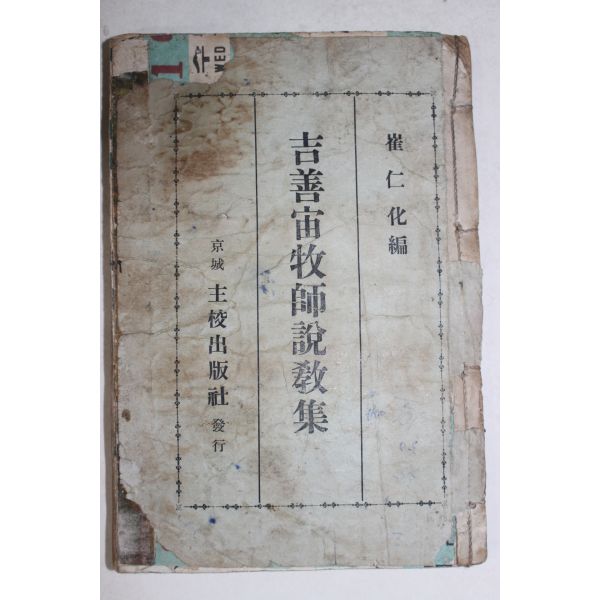 崔仁化編
吉善宙牧師說敎集
京城 主校出版社 發行
WED